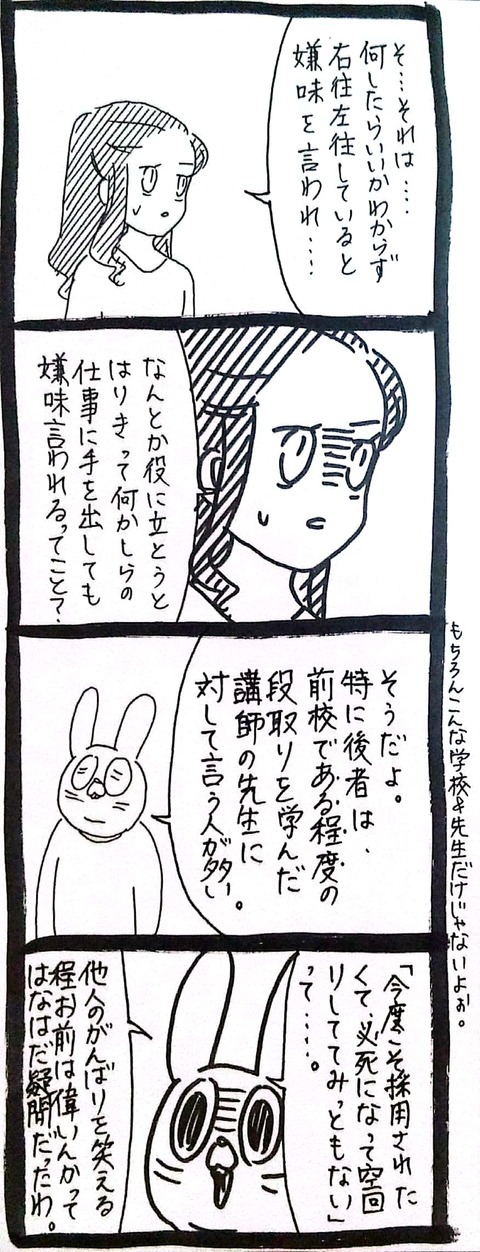 そ…それは……
何したらいいかわからず
右往左往していると
嫌味を言われ……
なんとか役に立とうと
はりきって何かしらの
仕事に手を出しても
嫌味言われるってこと？
そうだよ。
特に後者は、
前校である程度の
段取りを学んだ
講師の先生に
対して言う人が多い。
もちろんこんな学校&先生だけじゃないよぉ。
「今度こそ採用された
くて、必死になって空回
りしててみっともない」
って……。
他人のがんばりを笑える
程お前は偉いんかって
はなはだ疑問だったわ。